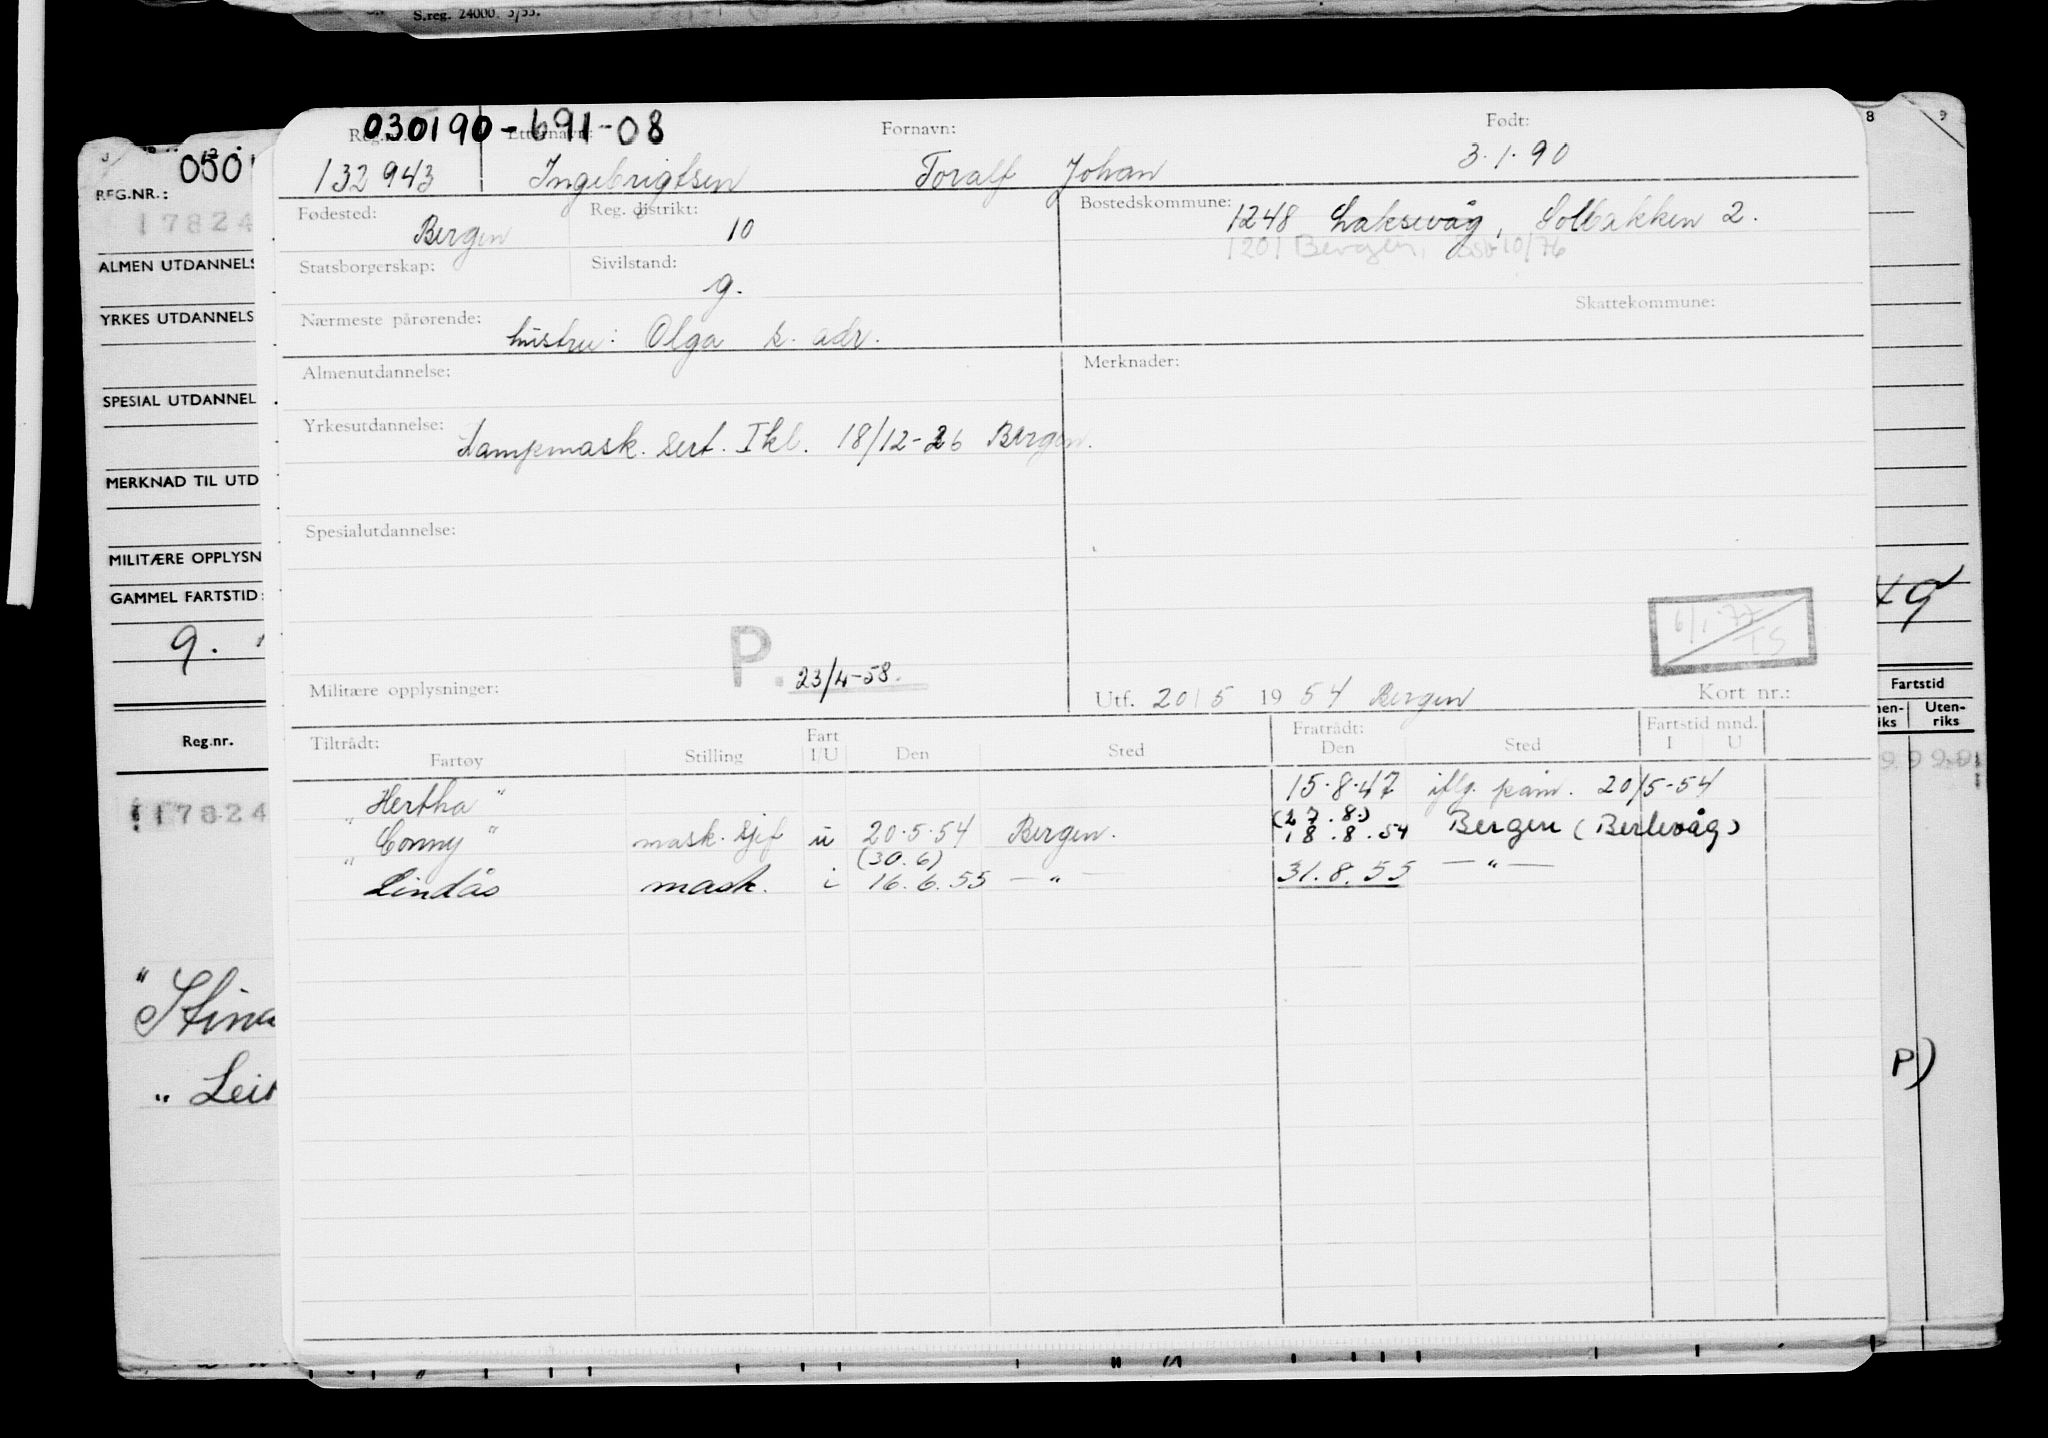 S.reg. 24000. 3/53.
030190-691-08
Reg.nr. Etternavn: Fornavn: Født:
132943 Ingebrigtsen Toralf Johan 3.1.90
Fødested: Bergen Reg. distrikt: 10 Bostedskommune: 1248 Laksevåg, Solbakken 2.
1201 Bergen, 10/76
Statsborgerskap: Sivilstand: g.
Skattekommune:
Nærmeste pårørende: hustru: Olga s. adr.
Almenutdannelse: Merknader:
Yrkesutdannelse: Dampmask. sert. I kl. 18/12-26 Bergen.
Spesialutdannelse:
6/1-77
TS
P. 23/4-58.
Militære opplysninger: Utf. 20/5 1954 Bergen Kort nr.:
Tiltrådt: Fart Fratrådt: Fartstid mnd.
Fartøy Stilling I/U Den Sted Den Sted I U
"Hertha" 15.8.47 iflg. påm. 20/5-54
(27.8.)
"Conny" mask. sjef u 20.5.54 Bergen. 18.8.54 Bergen (Berlevåg)
(30.6)
"Lindås mask. i 16.6.55 —"— 31.8.55 —"—
050
REG.NR.:
17824
ALMEN UTDANNELS
YRKES UTDANNELS
SPESIAL UTDANNEL
MERKNAD TIL UTD
MILITÆRE OPPLYSN
GAMMEL FARTSTID:
9.
Reg.nr.
17824
"Stina
" Lei
8 9
49
Fartstid
nen-
riks
Uten-
riks
9.9 9.9
P)